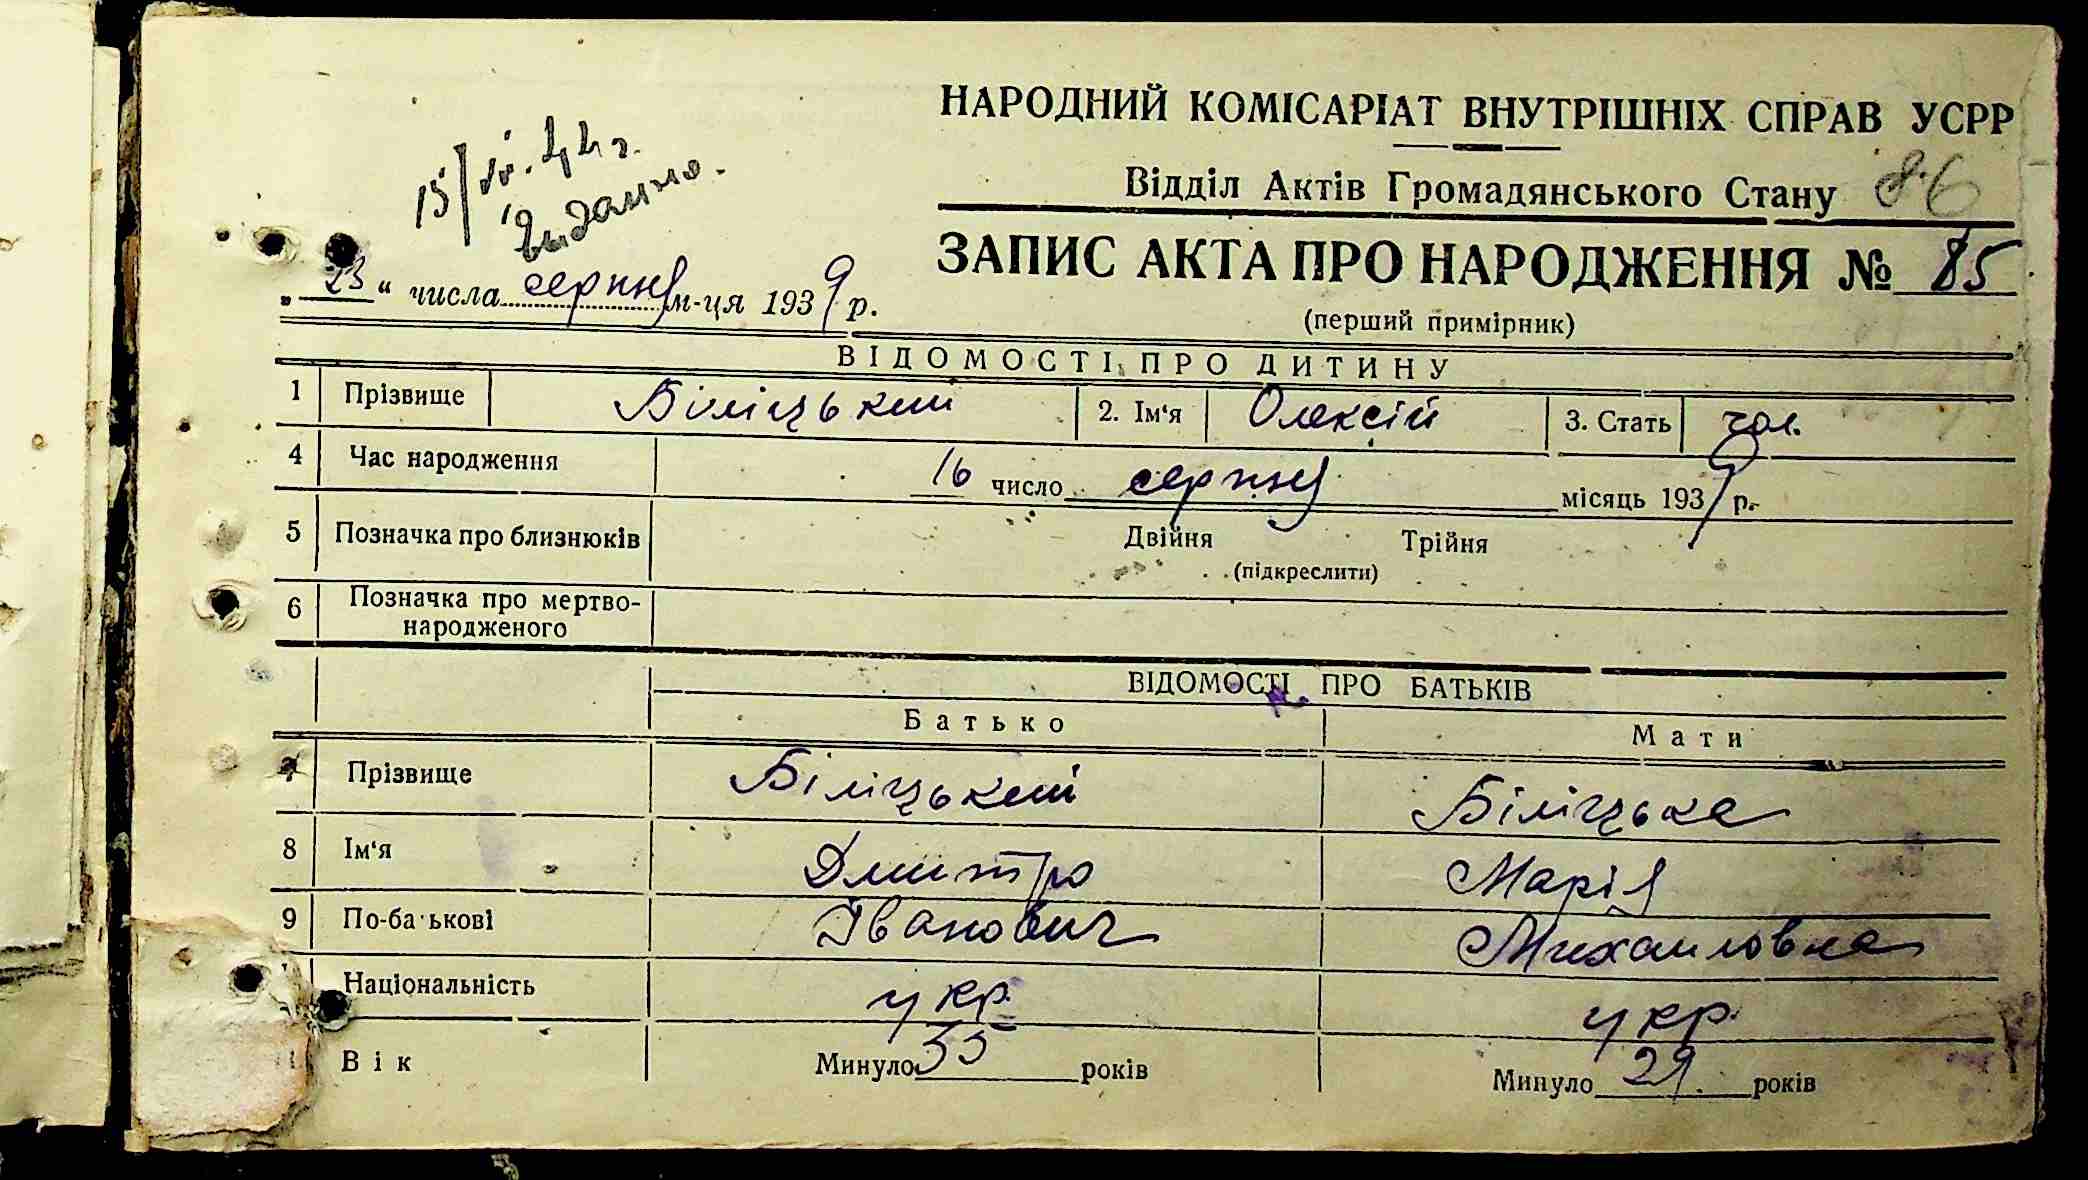 НАРОДНИЙ КОМІСАРІАТ ВНУТРІШНІХ СПРАВ УСРР
Відділ Актів Громадянського Стану 86
ЗАПИС АКТА ПРО НАРОДЖЕННЯ № 85
(перший примірник)
Видапно.
„23“ числа серпня м-ця 1939 р.
ВІДОМОСТІ ПРО ДИТИНУ
1 Прізвище Біліцький 2. Ім‘я Олексій 3. Стать чол.
4 Час народження 16 число серпня місяць 1939 р.
5 Позначка про близнюків Двійня Трійня
(підкреслити)
6 Позначка про мертво-
народженого
ВІДОМОСТІ ПРО БАТЬКІВ
Батько Мати
7 Прізвище Біліцький Біліцька
8 Ім‘я Дмитро Марія
9 По-батькові Іванович Михаиловна
Національність укр. укр.
Вік Минуло 35 років Минуло 29. років